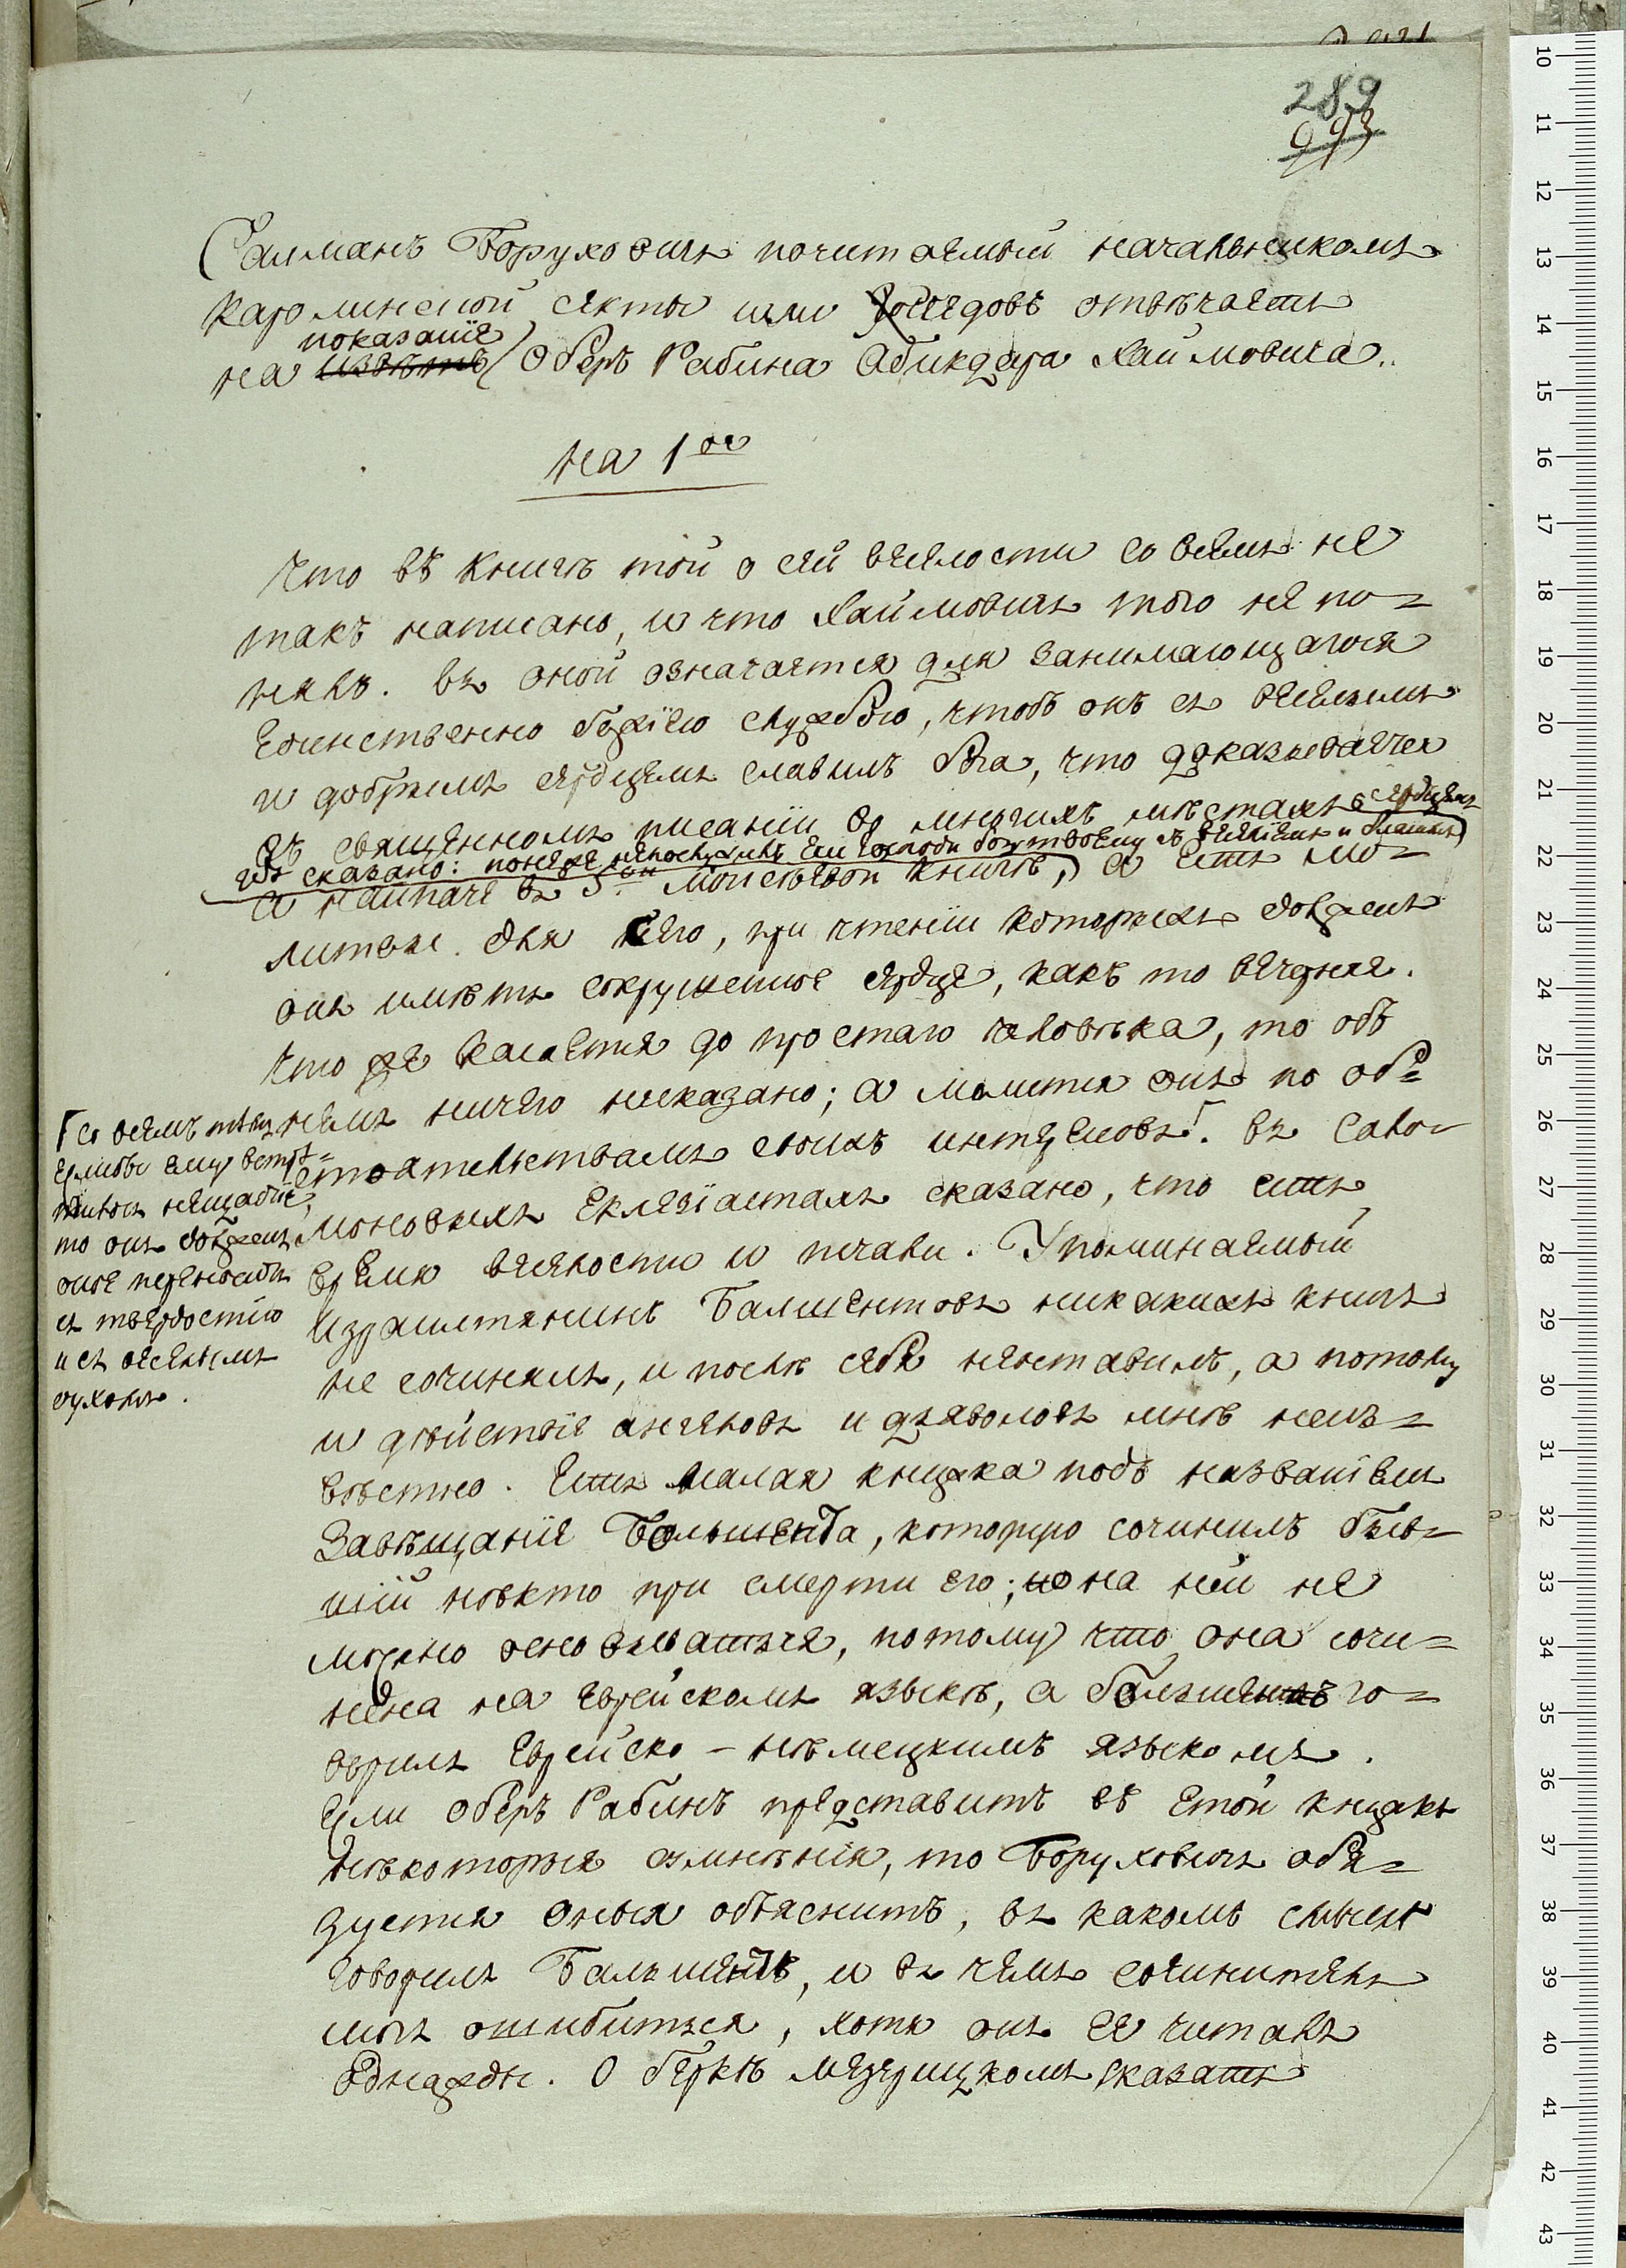 289
993
Салманъ Боруховичь почитаемый начальникомъ
каролинской секты или хосѣдовъ отвѣчаетъ
показаніе
на извѣтъ Оберъ Рабина Абикдера Хаимовича.
на 1ое
Что въ книгѣ той о сей веселости со всемъ не
такъ написано, и что Хаимовичь того не по=
нялъ. въ оной означается для занимающагося
единственно божіею службою, чтобъ онъ съ веселымъ
и добрымъ сердцемъ славилъ Бога, что доказывается
въ священномъ писаніи во многихъ мѣстахъ
гдѣ сказано: понеже непослужилъ еси Господи Богу твоему въ веселіемъ и благимъ сердцемъ
а наипаче въ 5ой Моисѣевой книгѣ, а есть мо=
литвы для него, при чтеніи которыхъ долженъ
онъ имѣть сокрушенное сердце, какъ то вечерняя.
Что же касается до простаго человѣка, то объ
немъ ничего несказано; а молится онъ по об=
стоятельствамъ своихъ интересовъ. въ Соло=
моновыхъ Еклезіастахъ сказано, что есть
время веселости и печали. Упоминаемый
Израилтянинъ Балшентовъ никакихъ книгъ
не сочинялъ, и послѣ себя неоставилъ, а потому
и дѣйствіе ангеловъ и дзяволовъ мнѣ неиз=
вѣстно. Есть малая книжка подъ названіемъ
Завѣщаніе Бальшенба, которую сочинилъ быв=
шій нѣкто при смерти его; но на ней не
можно основываться, потому что она сочи=
нена на еврейскомъ языкѣ, а Балшенъ го=
ворилъ еврейско-нѣмецкимъ языкомъ.
Если Оберъ Рабинъ представитъ въ етой книжкѣ
нѣкоторыя сумнѣнія, то Боруховичь обя=
зуется оныя объяснить, въ какомъ смыслѣ
говорилъ Бальшентъ, и въ чемъ сочинитель
могъ ошибиться, хотя онъ ее читалъ
однажды. О Беркѣ Мезерицкомъ сказать
со всемъ тѣмъ
естьли ему встрѣ=
тилось нещастіе,
то онъ долженъ
оное переносить
съ твердостію
и съ веселымъ
духомъ.